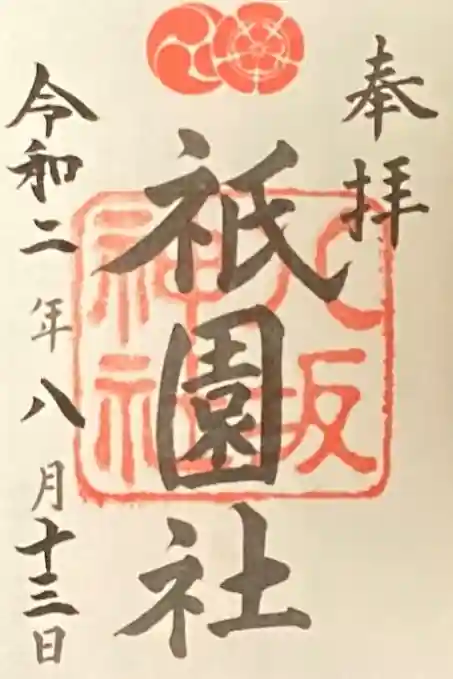 奉拝
祇園社
八坂
神社
令和二年八月十三日